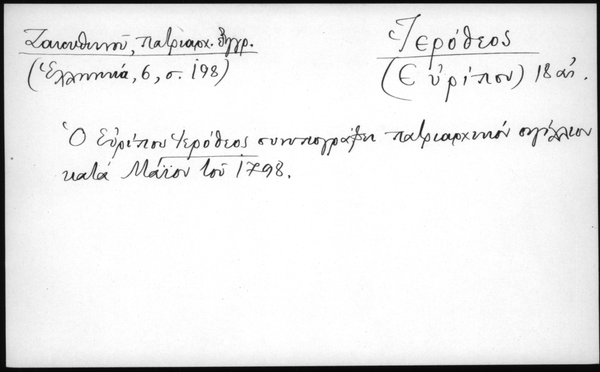 Ζακυθηνοῦ, Πατριαρχ. Ἔγγρ.
(Ἑλληνικά, 6, σ. 198)
Ἱερόθεος
(Εὐρίπου) 18 αἰ.
Ὁ Εὐρίπου Ἱερόθεος συνυπογράφει πατριαρχικόν σιγίλλιον
κατά Μάϊον τοῦ 1798.